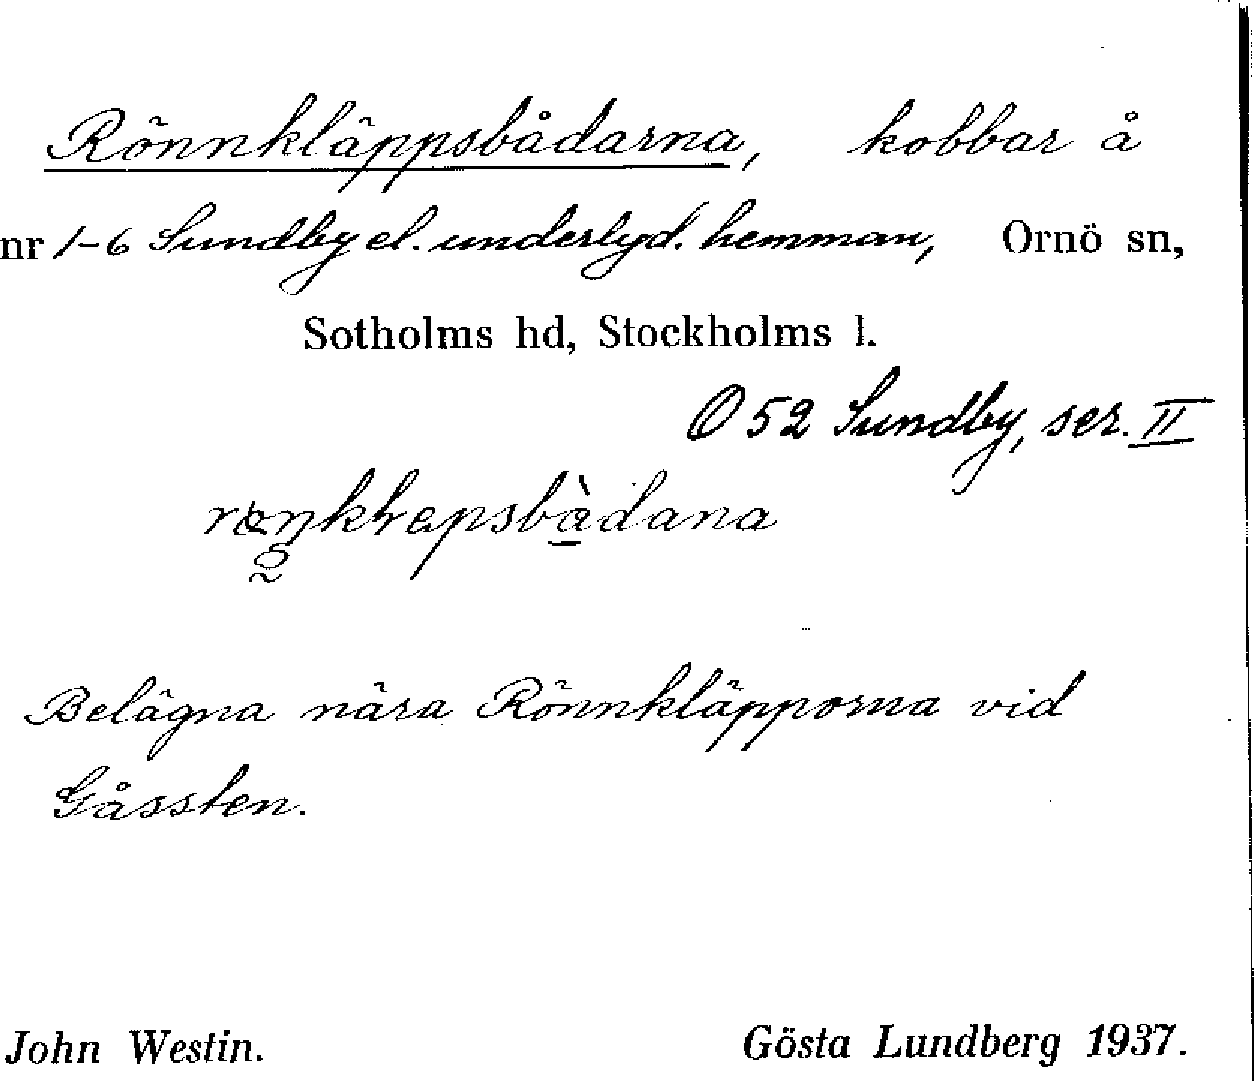 Rönnkläppsbådarna, kobbar å
nr 1-6 Sundby el. underlyd. hemman, Ornö sn,
Sotholms hd, Stockholms l.
O 52 Sundby, ser. II
Belägna nära Rönnkläpporna vid
Gåssten.
John Westin. Gösta Lundberg 1937.